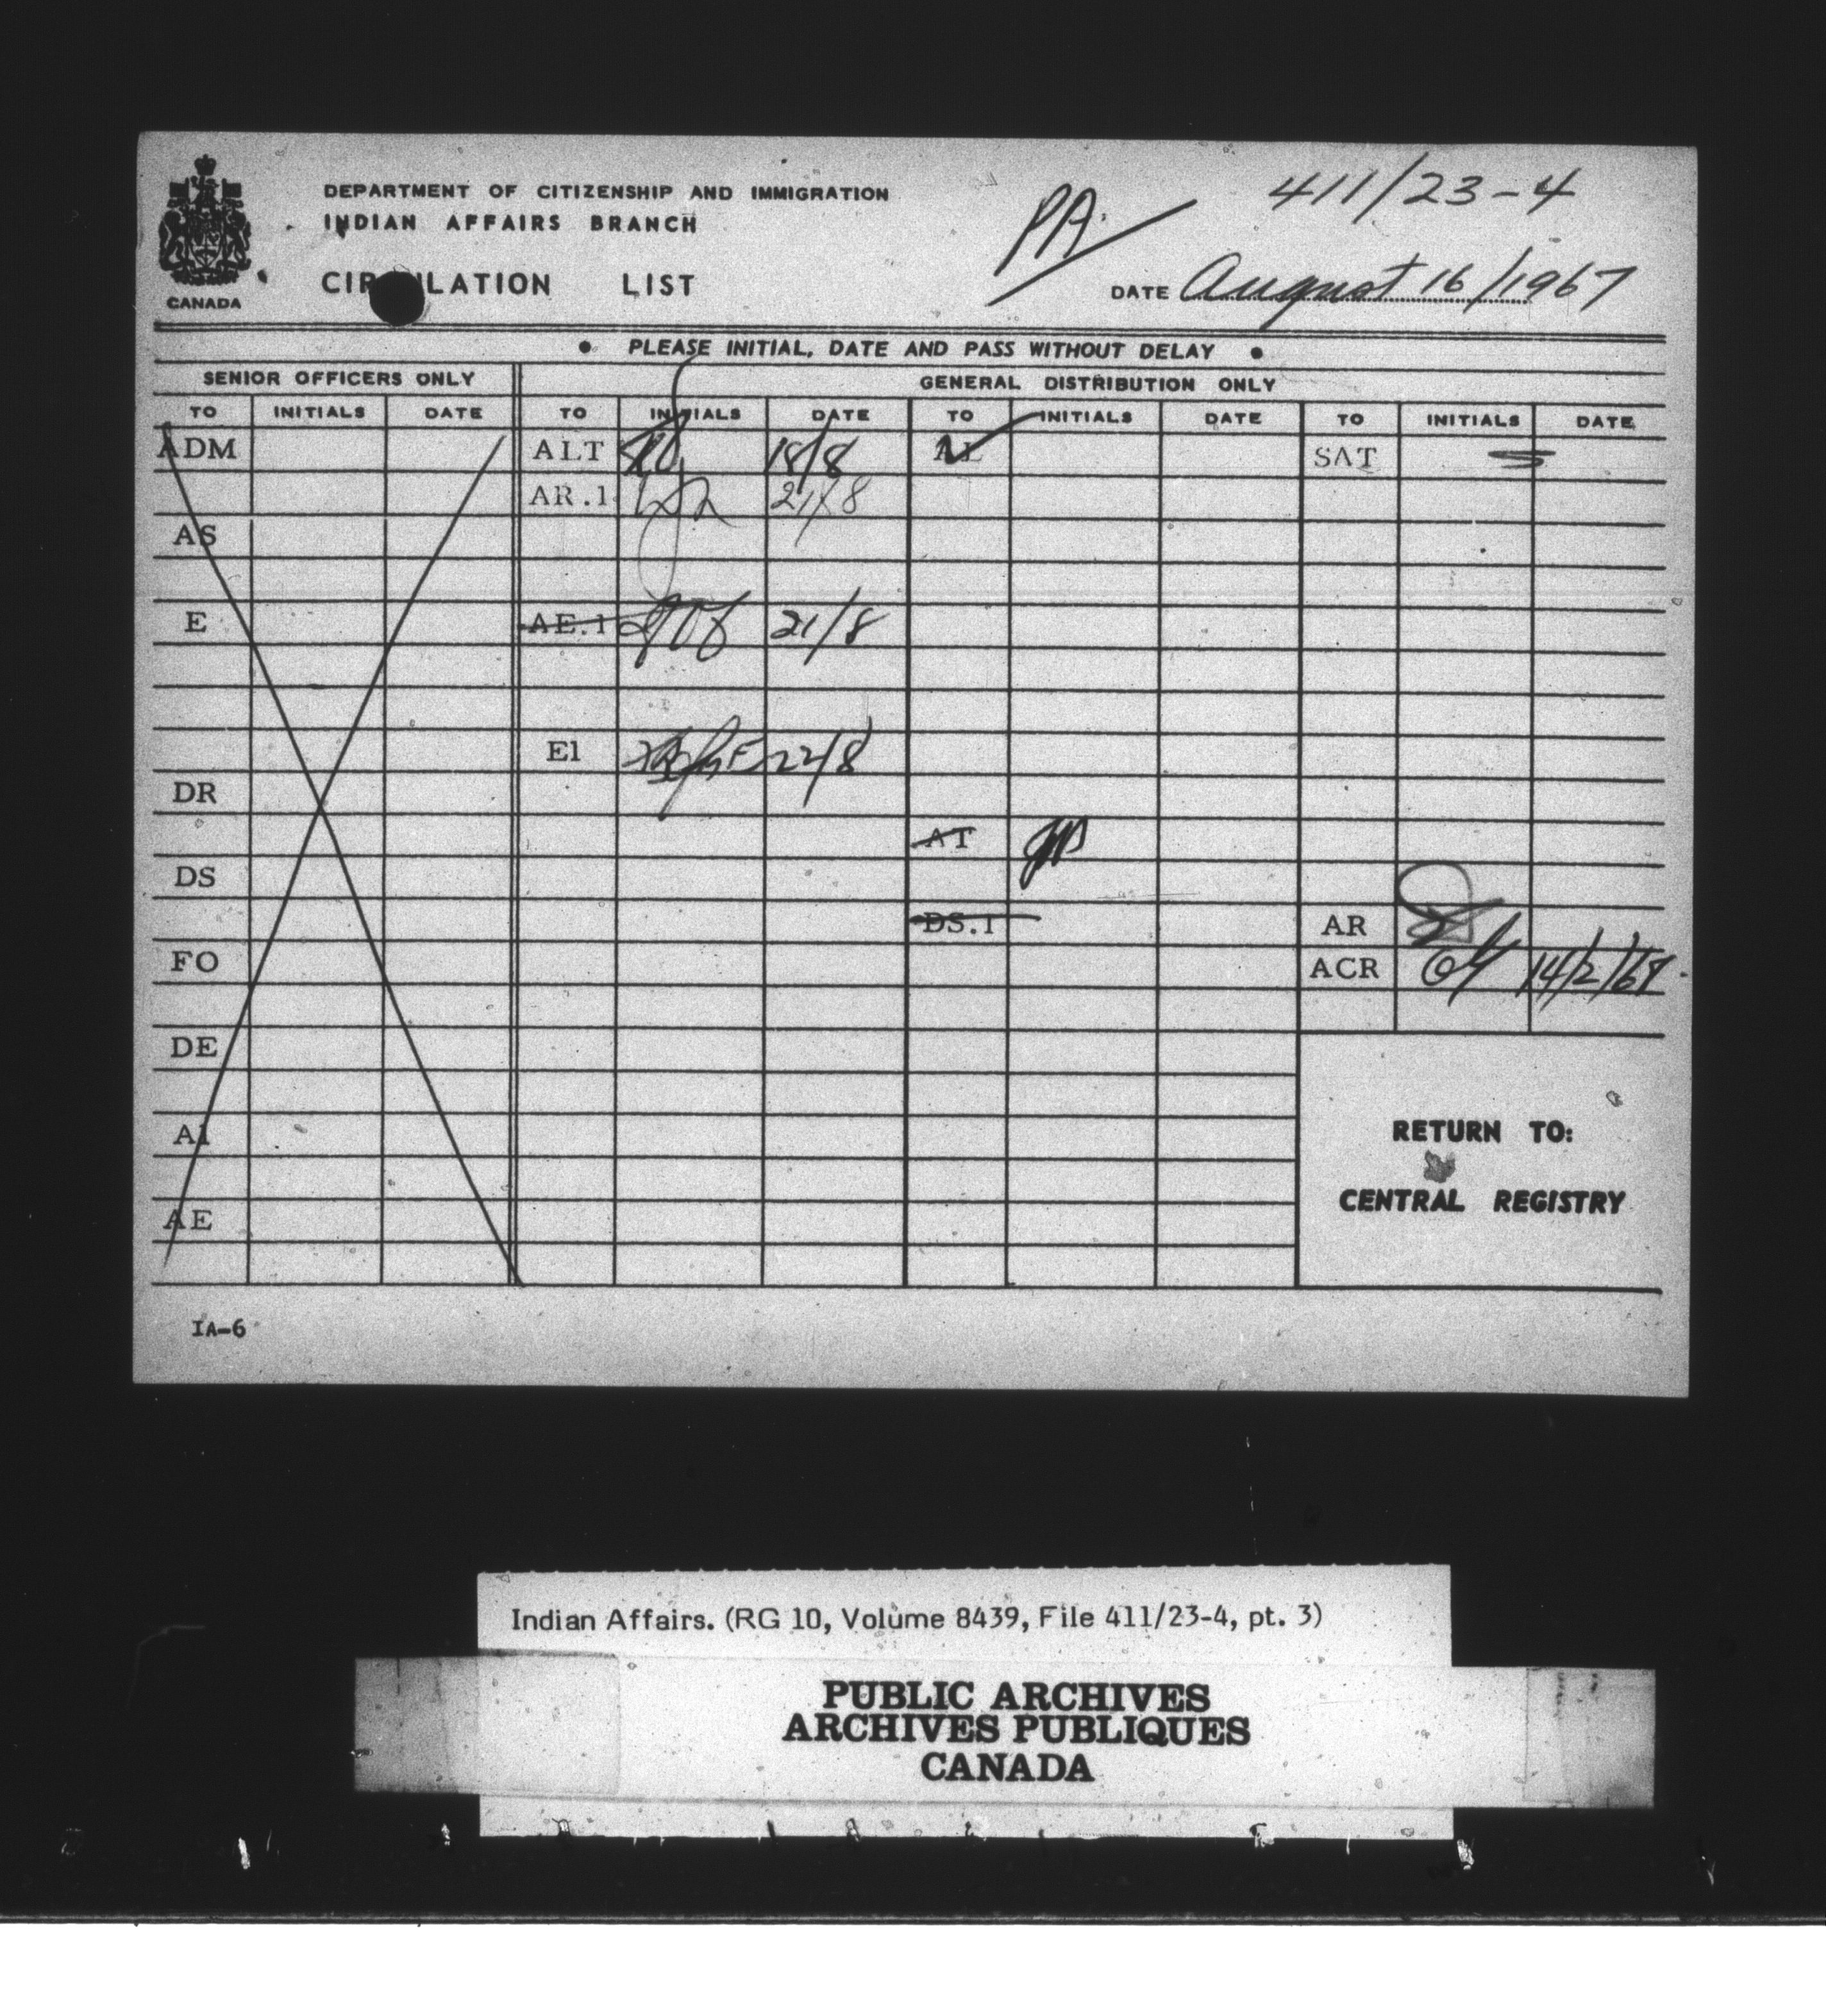 CANADA
DEPARTMENT OF CITIZENSHIP AND IMMIGRATION
INDIAN AFFAIRS BRANCH
CIRCULATION LIST
PA.
411/23-4
DATE August 16/1967
• PLEASE INITIAL, DATE AND PASS WITHOUT DELAY •
SENIOR OFFICERS ONLY GENERAL DISTRIBUTION ONLY
TO INITIALS DATE TO INITIALS DATE TO INITIALS DATE TO INITIALS DATE
ADM ALT 18/8 AL SAT
AR.1 21/8
AS
E AE.1 21/8
E1 22/8
DR
AT
DS
DS.1 AR
FO ACR 14/2/68
DE
A1
AE
RETURN TO:
CENTRAL REGISTRY
IA-6
Indian Affairs. (RG 10, Volume 8439, File 411/23-4, pt. 3)
PUBLIC ARCHIVES
ARCHIVES PUBLIQUES
CANADA